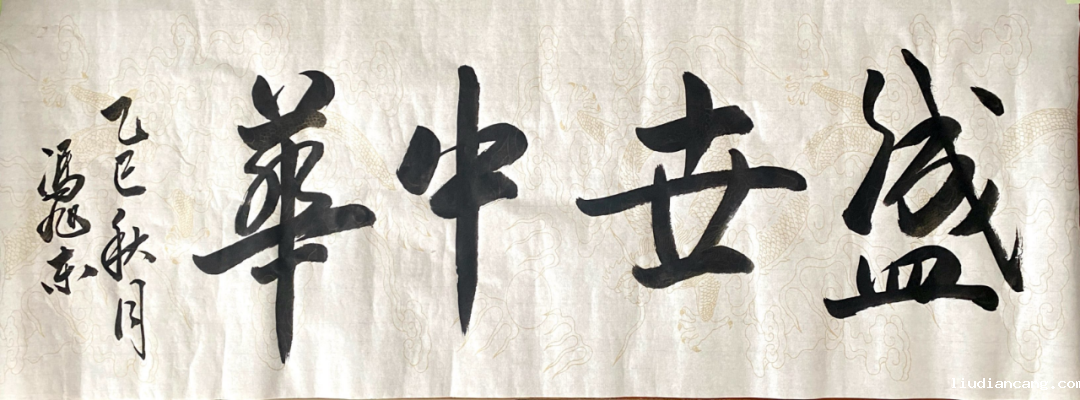 盛世中華
乙巳秋月
馮旭东
liudiancang.com